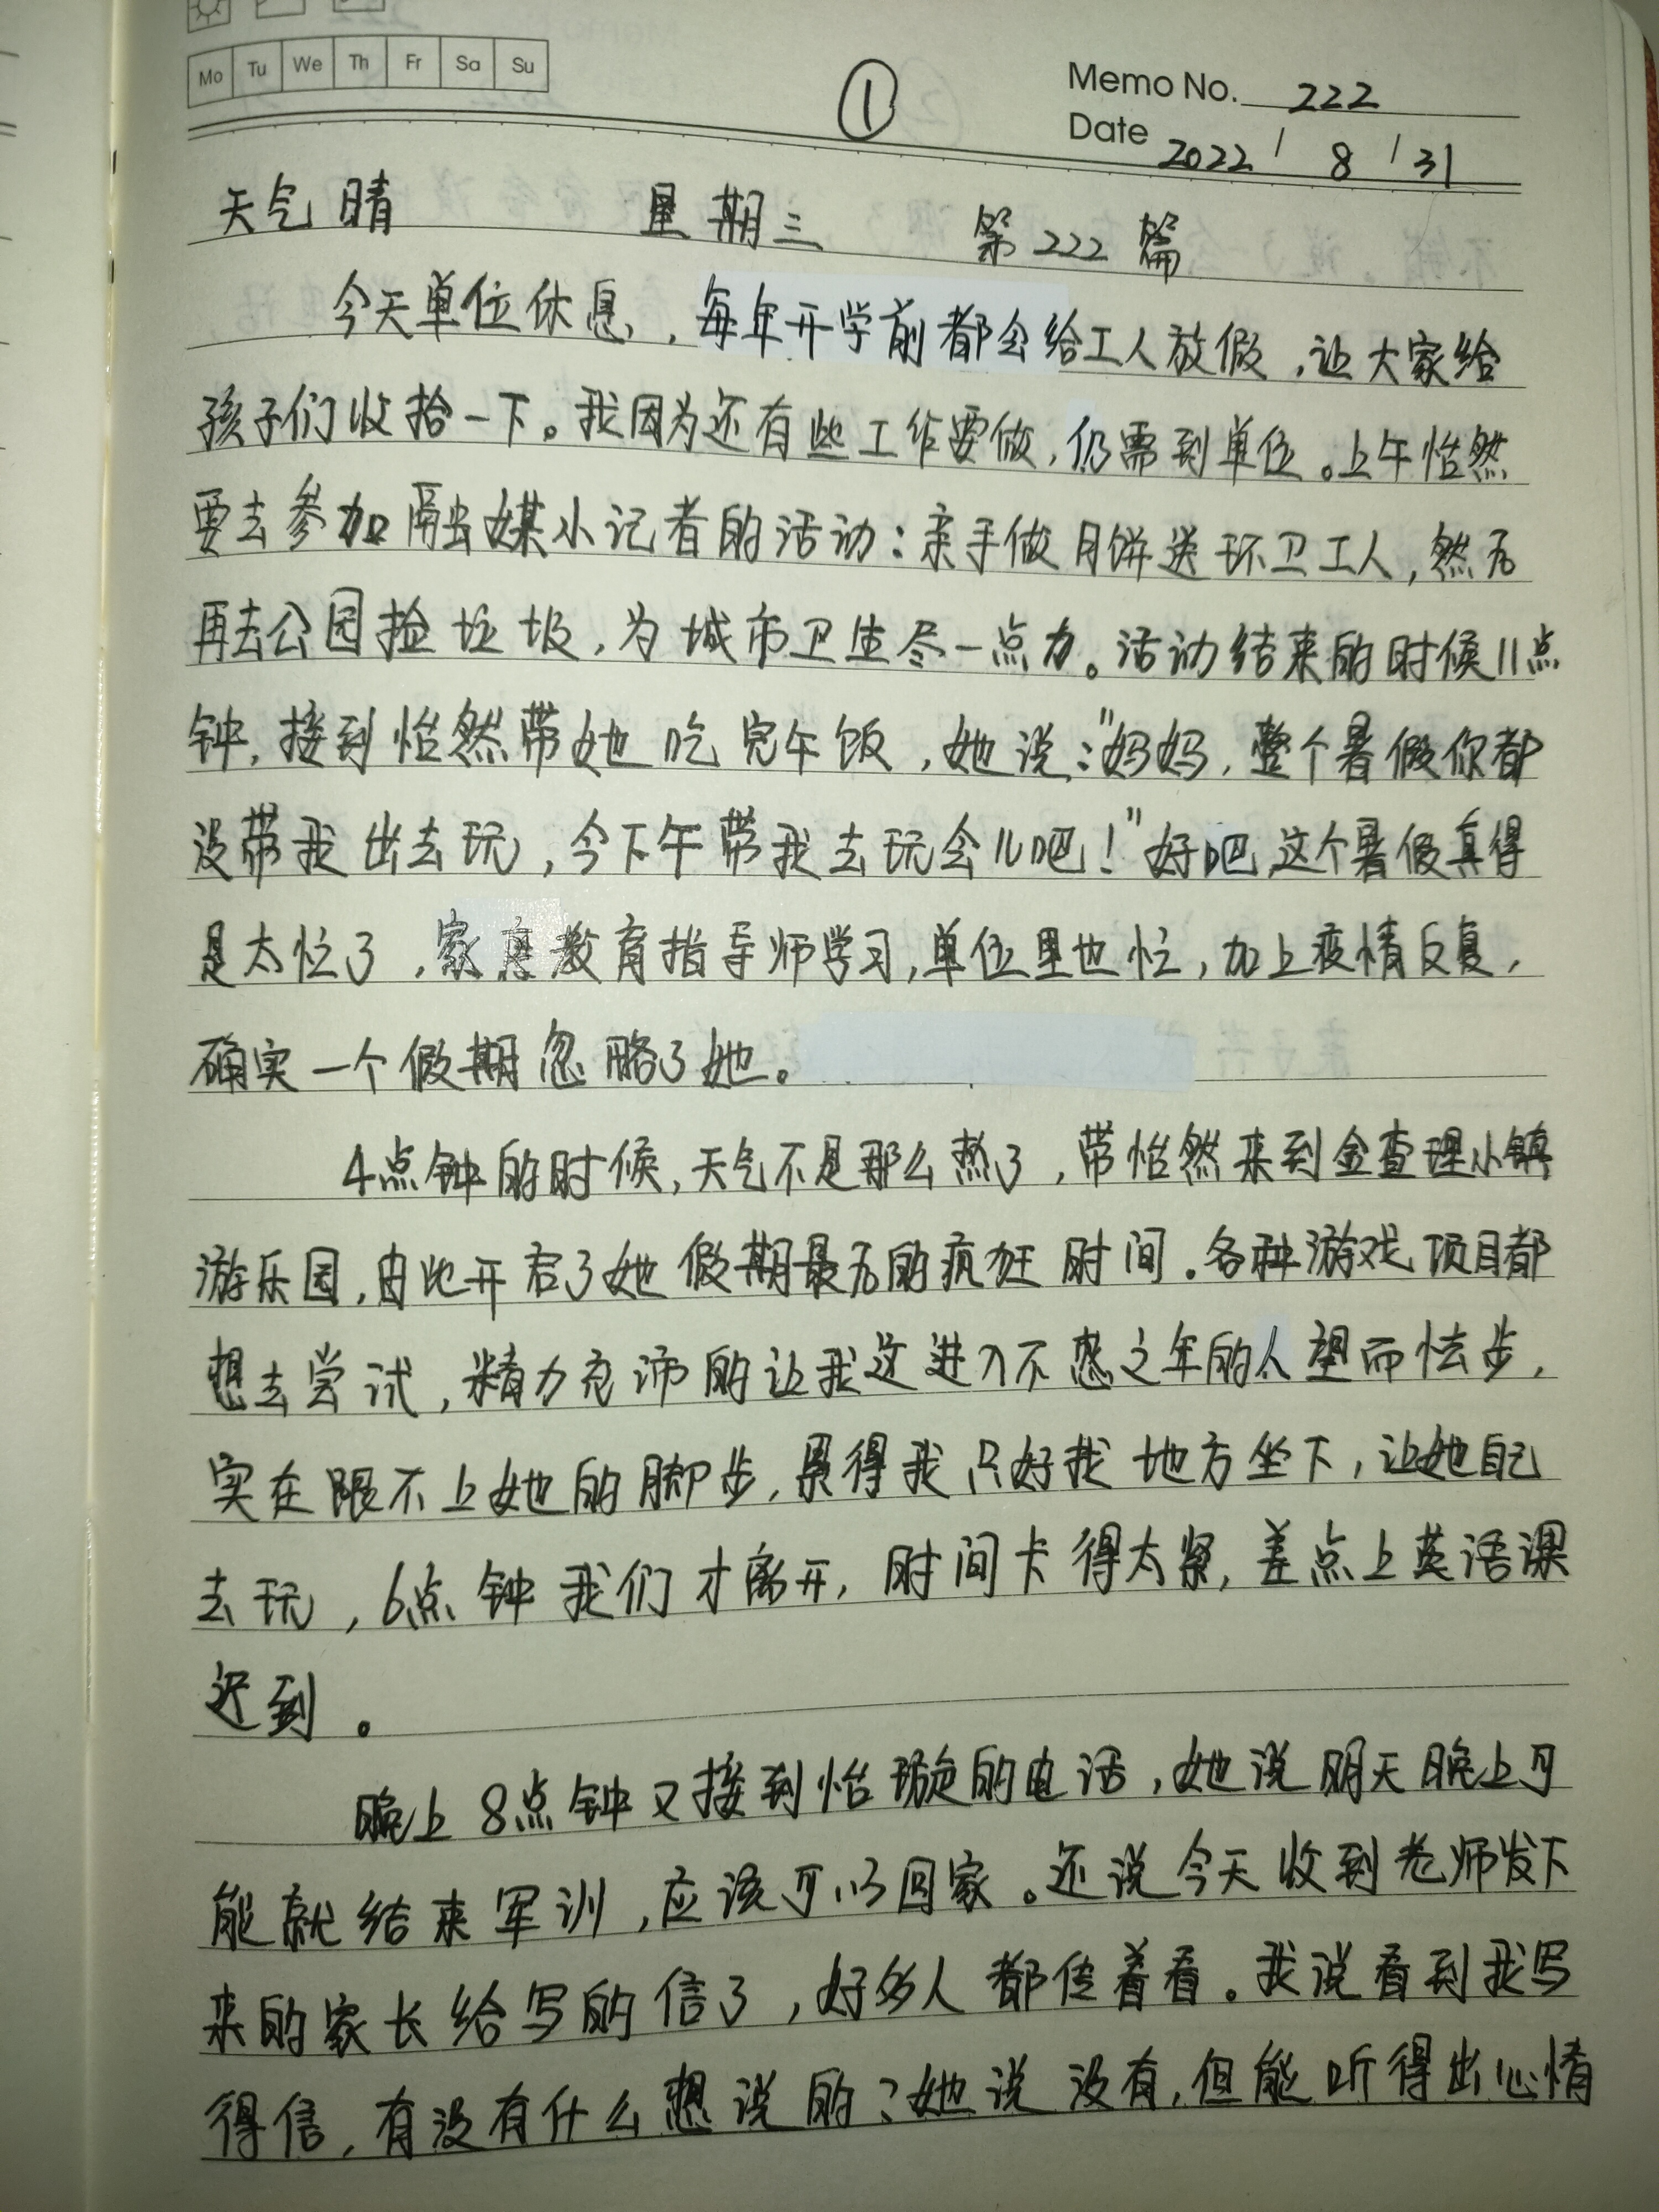 Mo Tu We Th Fr Sa Su
①
Memo No. 222
Date 2022 / 8 / 31
天气晴 星期三 第222篇
今天单位休息,每年开学前都会给工人放假,让大家给
孩子们收拾一下。我因为还有些工作要做,仍需到单位。上午怡然
要去参加融媒小记者的活动:亲手做月饼送环卫工人,然后
再去公园捡垃圾,为城市卫生尽一点力。活动结束的时候11点
钟,接到怡然带她吃完午饭,她说:"妈妈,整个暑假你都
没带我出去玩,今下午带我去玩会儿吧!"好吧,这个暑假真得
是太忙了,家庭教育指导师学习,单位里也忙,加上疫情反复,
确实一个假期忽略了她。
4点钟的时候,天气不是那么热了,带怡然来到金查理小镇
游乐园,由此开启了她假期最后的疯狂时间。各种游戏项目都
想去尝试,精力充沛的让我这进入不惑之年的人望而怯步,
实在跟不上她的脚步,累得我只好找地方坐下,让她自己
去玩,6点钟我们才离开,时间卡得太紧,差点上英语课
迟到。
晚上8点钟又接到怡璇的电话,她说明天晚上可
能就结束军训,应该可以回家。还说今天收到老师发下
来的家长给写的信了,好多人都传着看。我说看到我写
得信,有没有什么想说的?她说没有,但能听得出心情